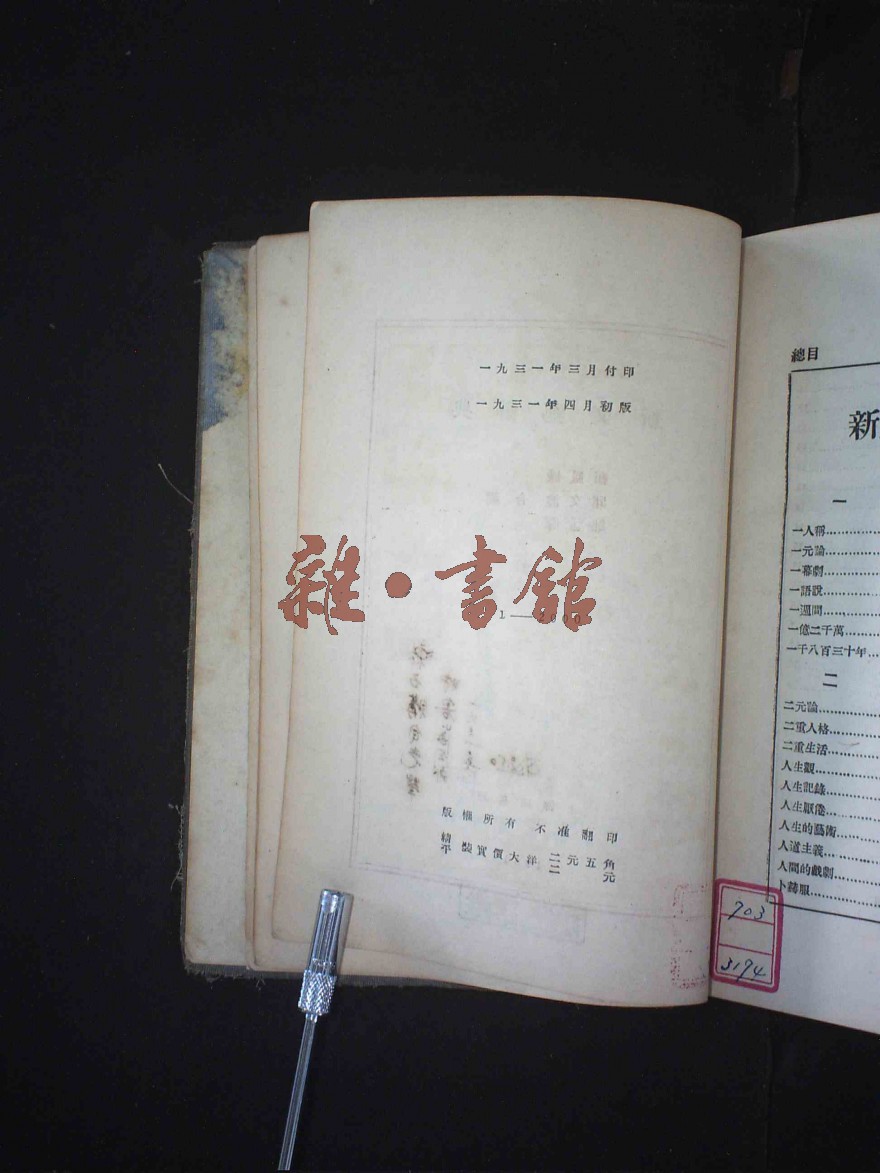 一九三一年三月付印
一九三一年四月初版
雜·書館
1—2000
版權所有 不准翻印
精裝實價大洋二元五角
平裝實價大洋二元
總目
新
一
一人稱
一元論
一幕劇
一語說
一週間
一億二千萬
一千八百三十年
二
二元論
二重人格
二重生活
人生觀
人生記錄
人生厭倦
人生的藝術
人道主義
人間的戲劇
卜赫服
703
3194